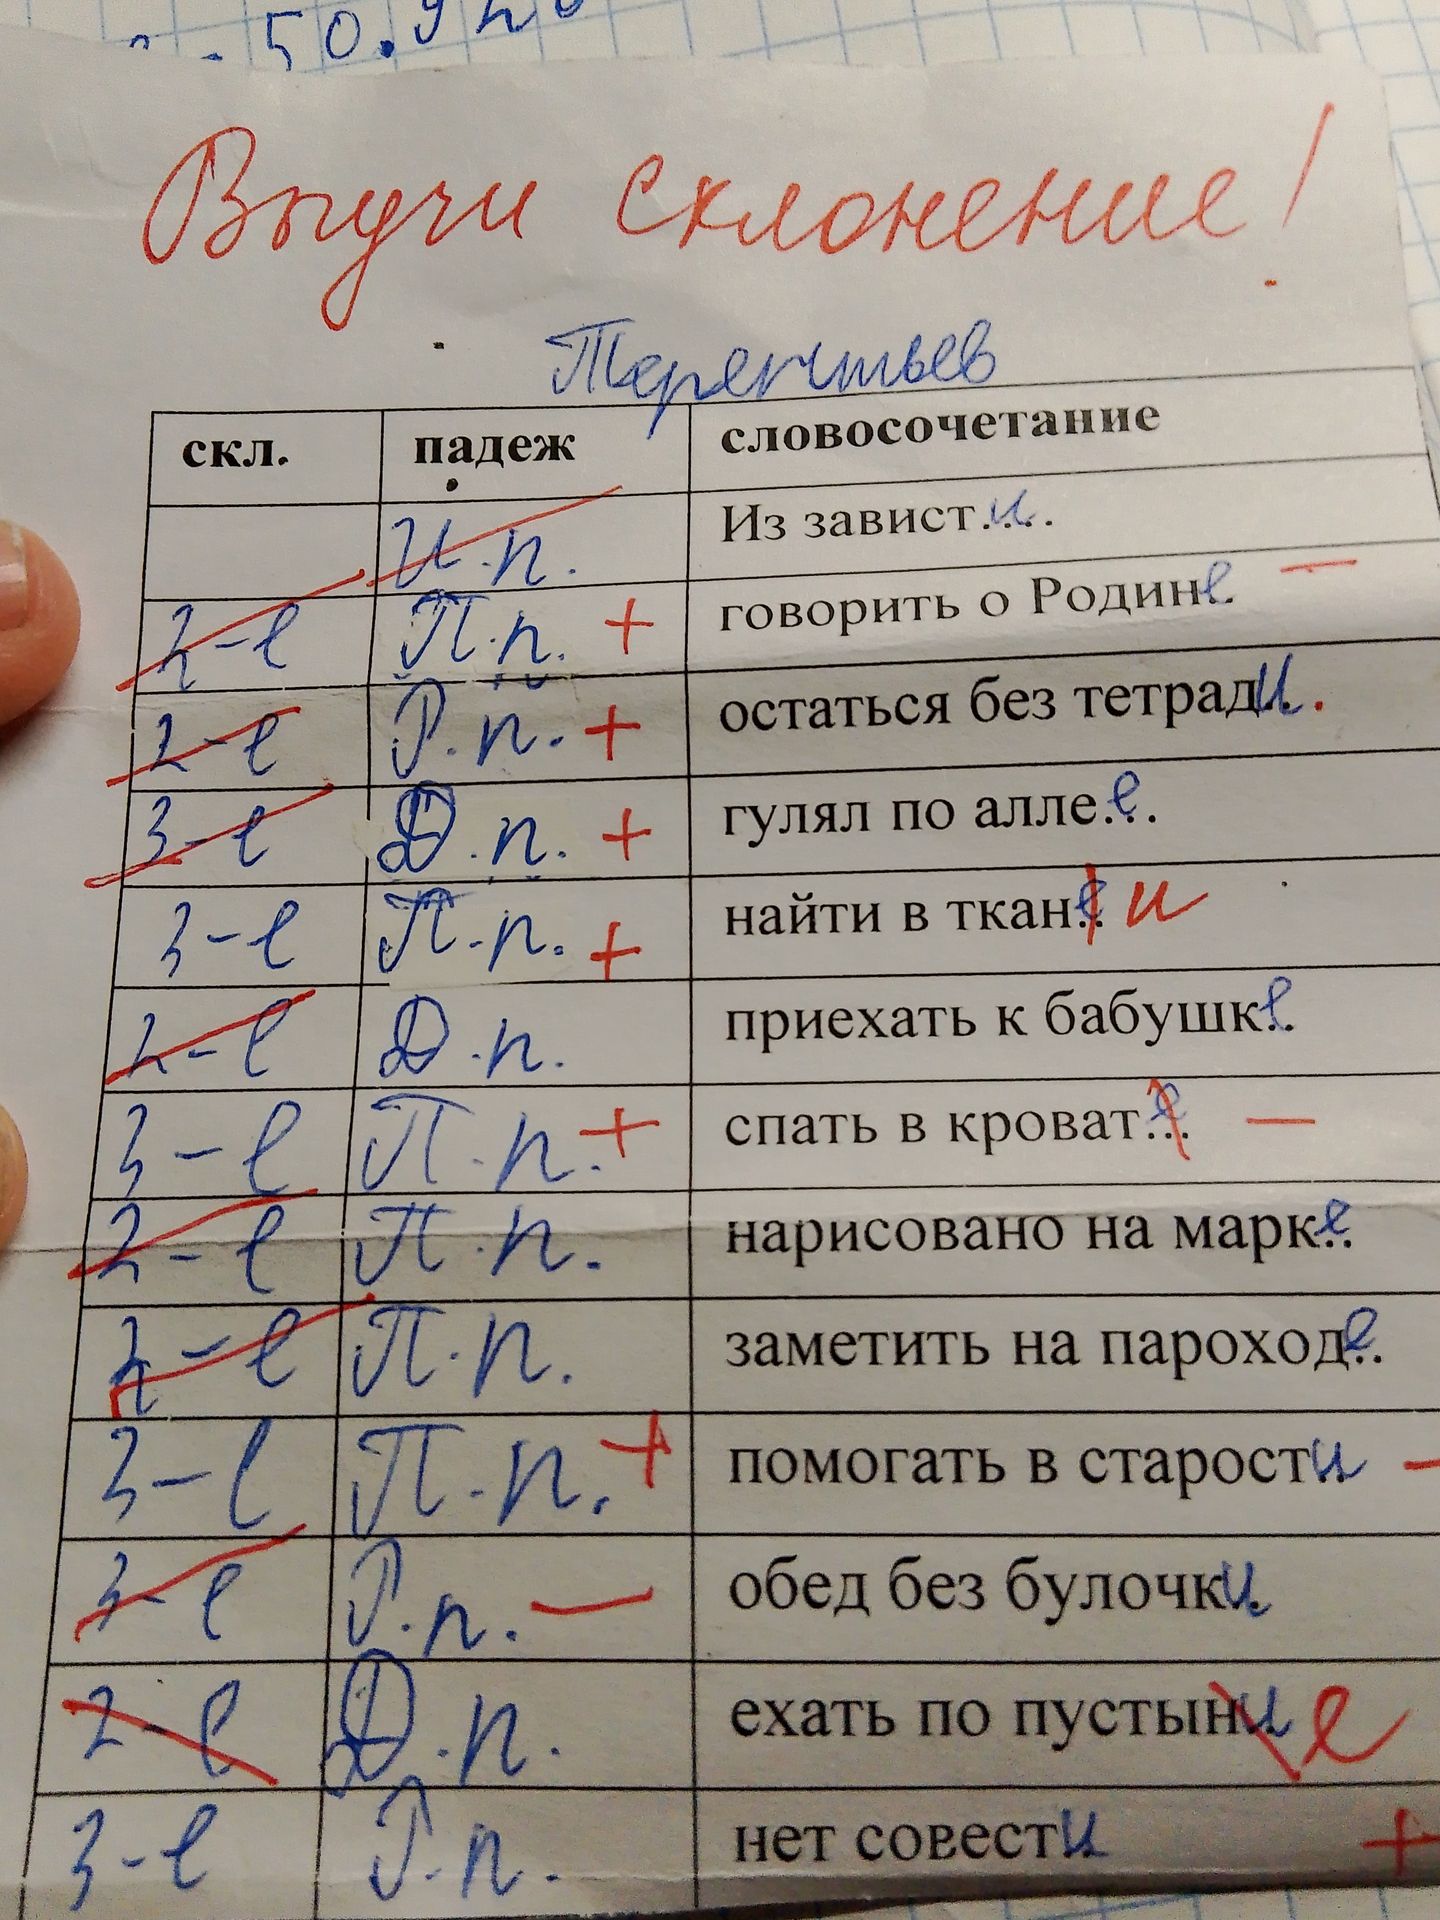 50.
Выучи склонение!
Терентьев
скл. падеж словосочетание
И.п. Из завист....и
2-е П.п. + говорить о Родин..е —
2-е Р.п. + остаться без тетради..
3-е Д.п. + гулял по алле...е
3-е П.п. + найти в ткан..е и
2-е Д.п. приехать к бабушк..е
3-е П.п. + спать в кроват...е —
2-е П.п. нарисовано на марк..е
2-е П.п. заметить на пароход..е
3-е П.п. + помогать в старости —
3-е Р.п. — обед без булочки
2-е Д.п. ехать по пустыни е
3-е Р.п. нет совести +